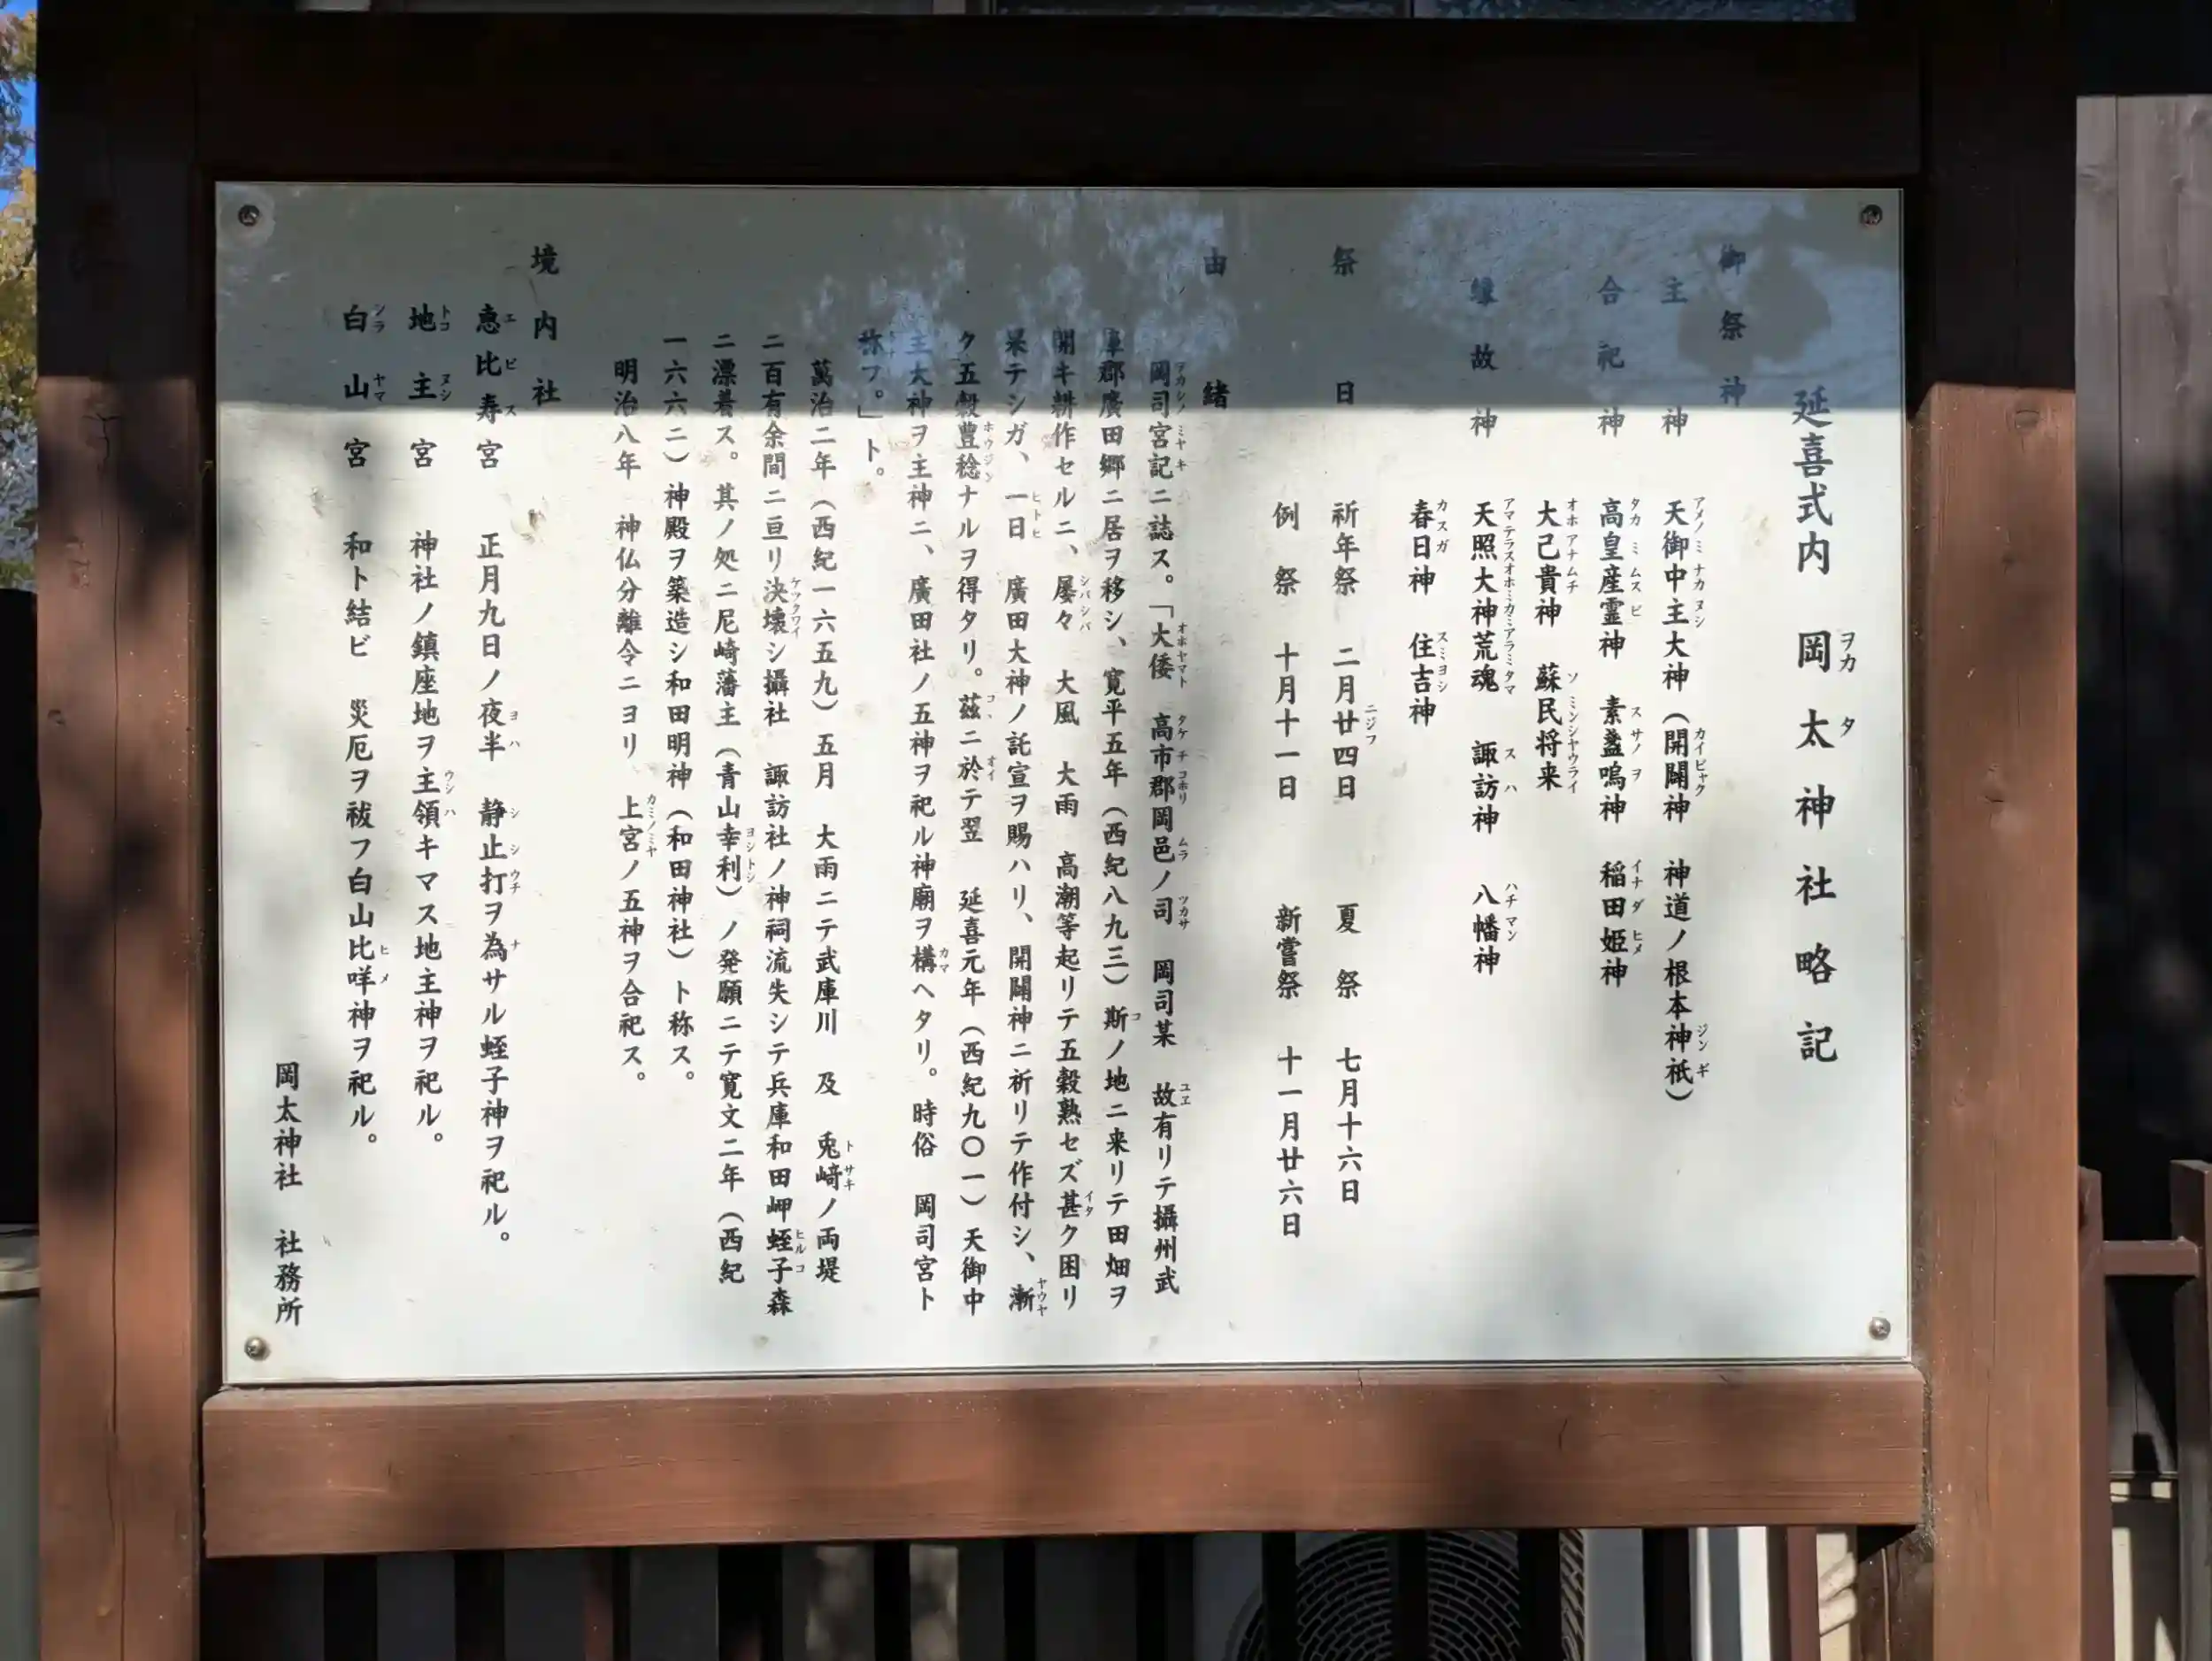 延喜式内 岡太神社略記
御祭神
主神 天御中主大神（開闢神 神道ノ根本神祇）
合祀神 高皇産霊神 素盞嗚神 稲田姫神
大己貴神 蘇民将来
縁故神 天照大神荒魂 諏訪神 八幡神
春日神 住吉神
祭日 祈年祭 二月廿四日 夏祭 七月十六日
例祭 十月十一日 新嘗祭 十一月廿六日
由緒
岡司宮記ニ誌ス。「大倭 高市郡岡邑ノ司 岡司某 故有リテ攝州武
庫郡廣田郷ニ居ヲ移シ、寛平五年（西紀八九三）斯ノ地ニ来リテ田畑ヲ
開キ耕作セルニ、屡々 大風 大雨 高潮等起リテ五穀熟セズ甚ク困リ
果テシガ、一日 廣田大神ノ託宣ヲ賜ハリ、開闢神ニ祈リテ作付シ、漸
ク五穀豊稔ナルヲ得タリ。茲ニ於テ翌 延喜元年（西紀九〇一）天御中
主大神ヲ主神ニ、廣田社ノ五神ヲ祀ル神廟ヲ構ヘタリ。時俗 岡司宮ト
称フ。」ト。
萬治二年（西紀一六五九）五月 大雨ニテ武庫川 及 兎﨑ノ両堤
二百有余間ニ亘リ決壊シ攝社 諏訪社ノ神祠流失シテ兵庫和田岬蛭子森
ニ漂着ス。其ノ処ニ尼崎藩主（青山幸利）ノ発願ニテ寛文二年（西紀
一六六二）神殿ヲ築造シ和田明神（和田神社）ト称ス。
明治八年 神仏分離令ニヨリ 上宮ノ五神ヲ合祀ス。
境内社
恵比寿宮 正月九日ノ夜半 静止打ヲ為サル蛭子神ヲ祀ル。
地主宮 神社ノ鎮座地ヲ主領キマス地主神ヲ祀ル。
白山宮 和ト結ビ 災厄ヲ祓フ白山比咩神ヲ祀ル。
岡太神社 社務所